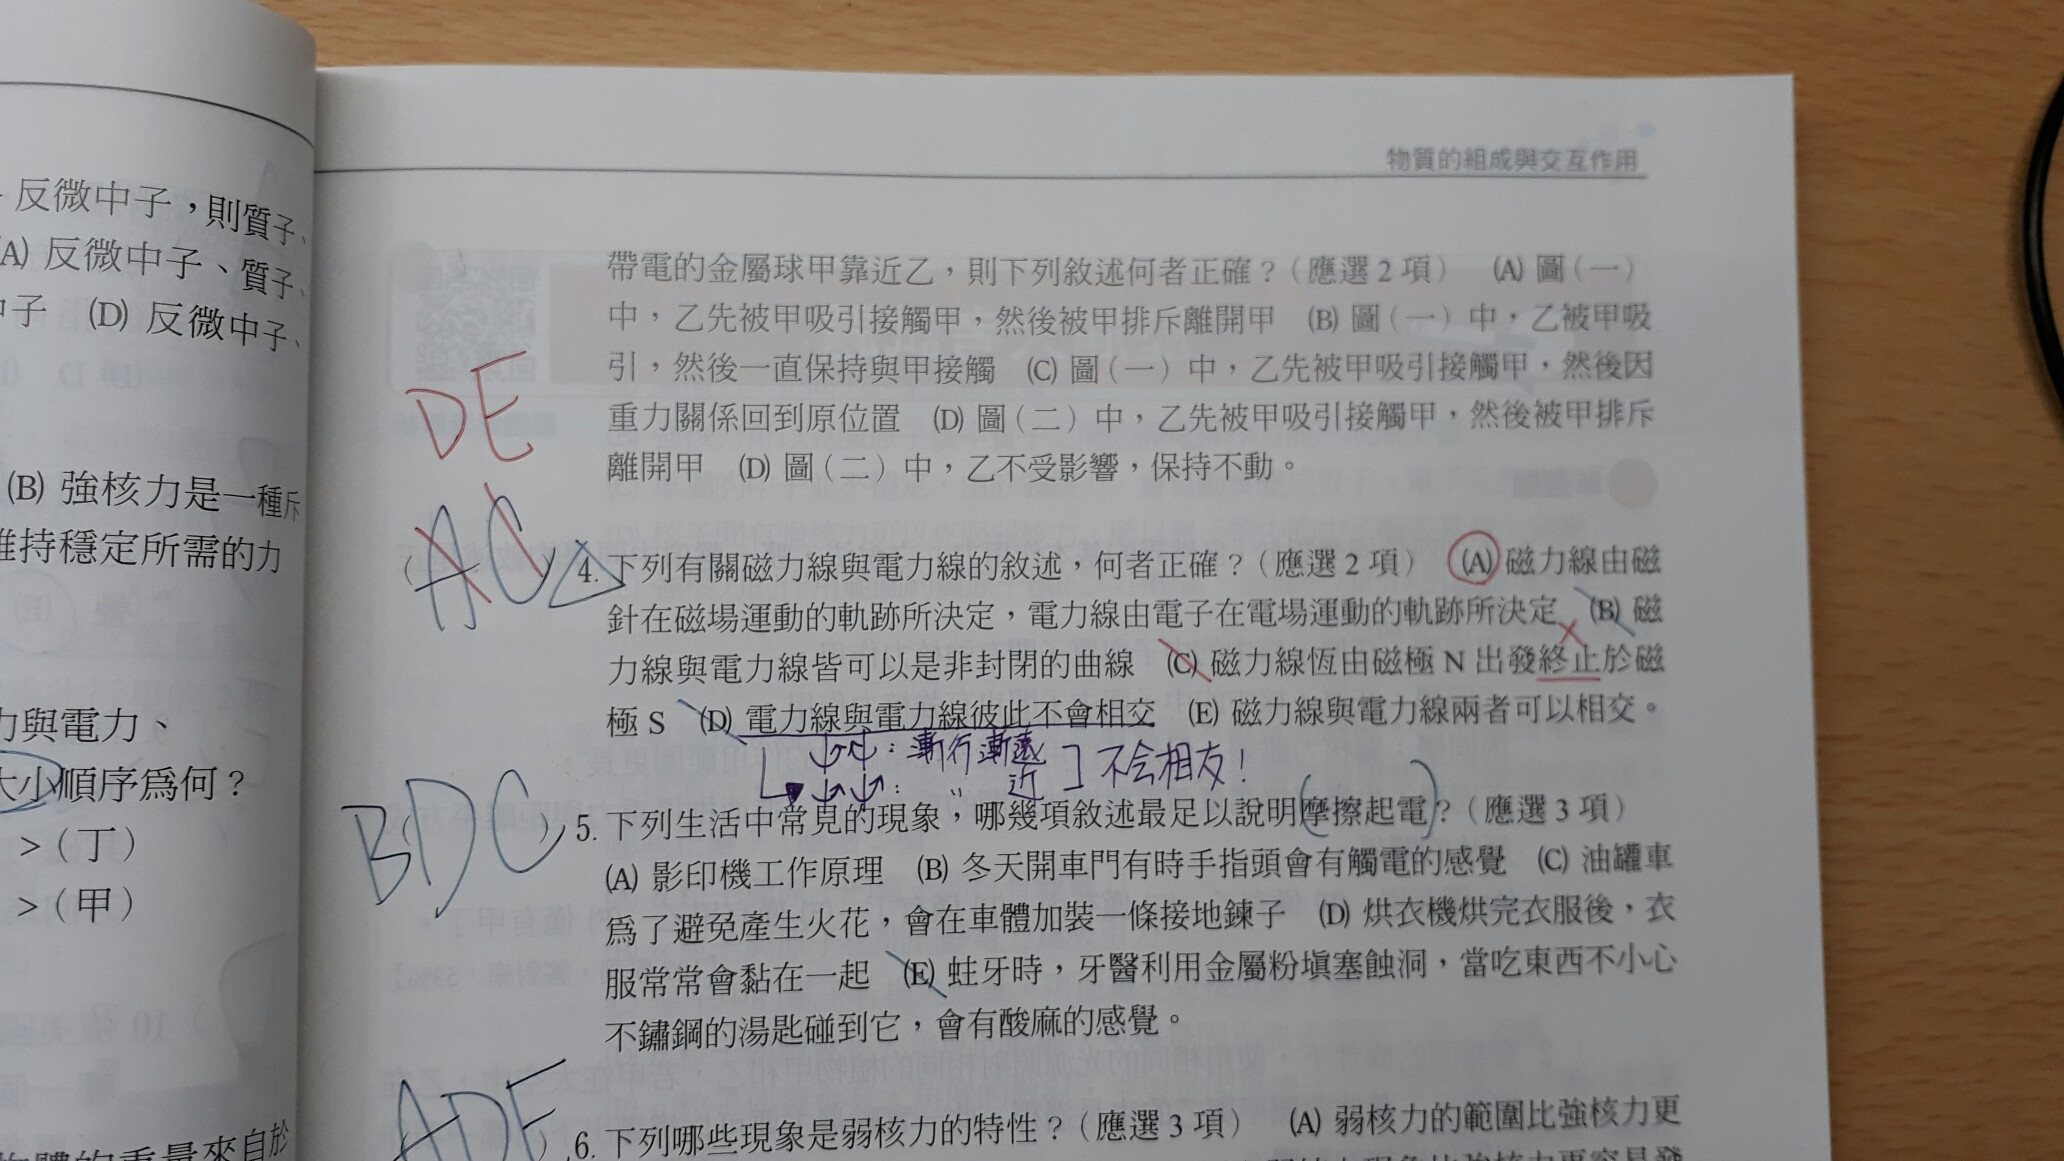 物質的組成與交互作用
反微中子，則質子、
(A) 反微中子、質子、
中子 (D) 反微中子、
(B) 強核力是一種斥
維持穩定所需的力
力與電力、
大小順序為何？
>（丁）
>（甲）
帶電的金屬球甲靠近乙，則下列敘述何者正確？（應選 2 項） (A) 圖（一）
中，乙先被甲吸引接觸甲，然後被甲排斥離開甲 (B) 圖（一）中，乙被甲吸
引，然後一直保持與甲接觸 (C) 圖（一）中，乙先被甲吸引接觸甲，然後因
重力關係回到原位置 (D) 圖（二）中，乙先被甲吸引接觸甲，然後被甲排斥
離開甲 (D) 圖（二）中，乙不受影響，保持不動。
DE
( AC ) 4. 下列有關磁力線與電力線的敘述，何者正確？（應選 2 項） (A) 磁力線由磁
針在磁場運動的軌跡所決定，電力線由電子在電場運動的軌跡所決定 (B) 磁
力線與電力線皆可以是非封閉的曲線 (C) 磁力線恆由磁極 N 出發終止於磁
極 S (D) 電力線與電力線彼此不會相交 (E) 磁力線與電力線兩者可以相交。
：漸行漸遠
： 〃 近 ] 不会相友！
( BDC ) 5. 下列生活中常見的現象，哪幾項敘述最足以說明摩擦起電？（應選 3 項）
(A) 影印機工作原理 (B) 冬天開車門有時手指頭會有觸電的感覺 (C) 油罐車
為了避免產生火花，會在車體加裝一條接地鍊子 (D) 烘衣機烘完衣服後，衣
服常常會黏在一起 (E) 蛀牙時，牙醫利用金屬粉填塞蝕洞，當吃東西不小心
不鏽鋼的湯匙碰到它，會有酸麻的感覺。
( ADE ) 6. 下列哪些現象是弱核力的特性？（應選 3 項） (A) 弱核力的範圍比強核力更